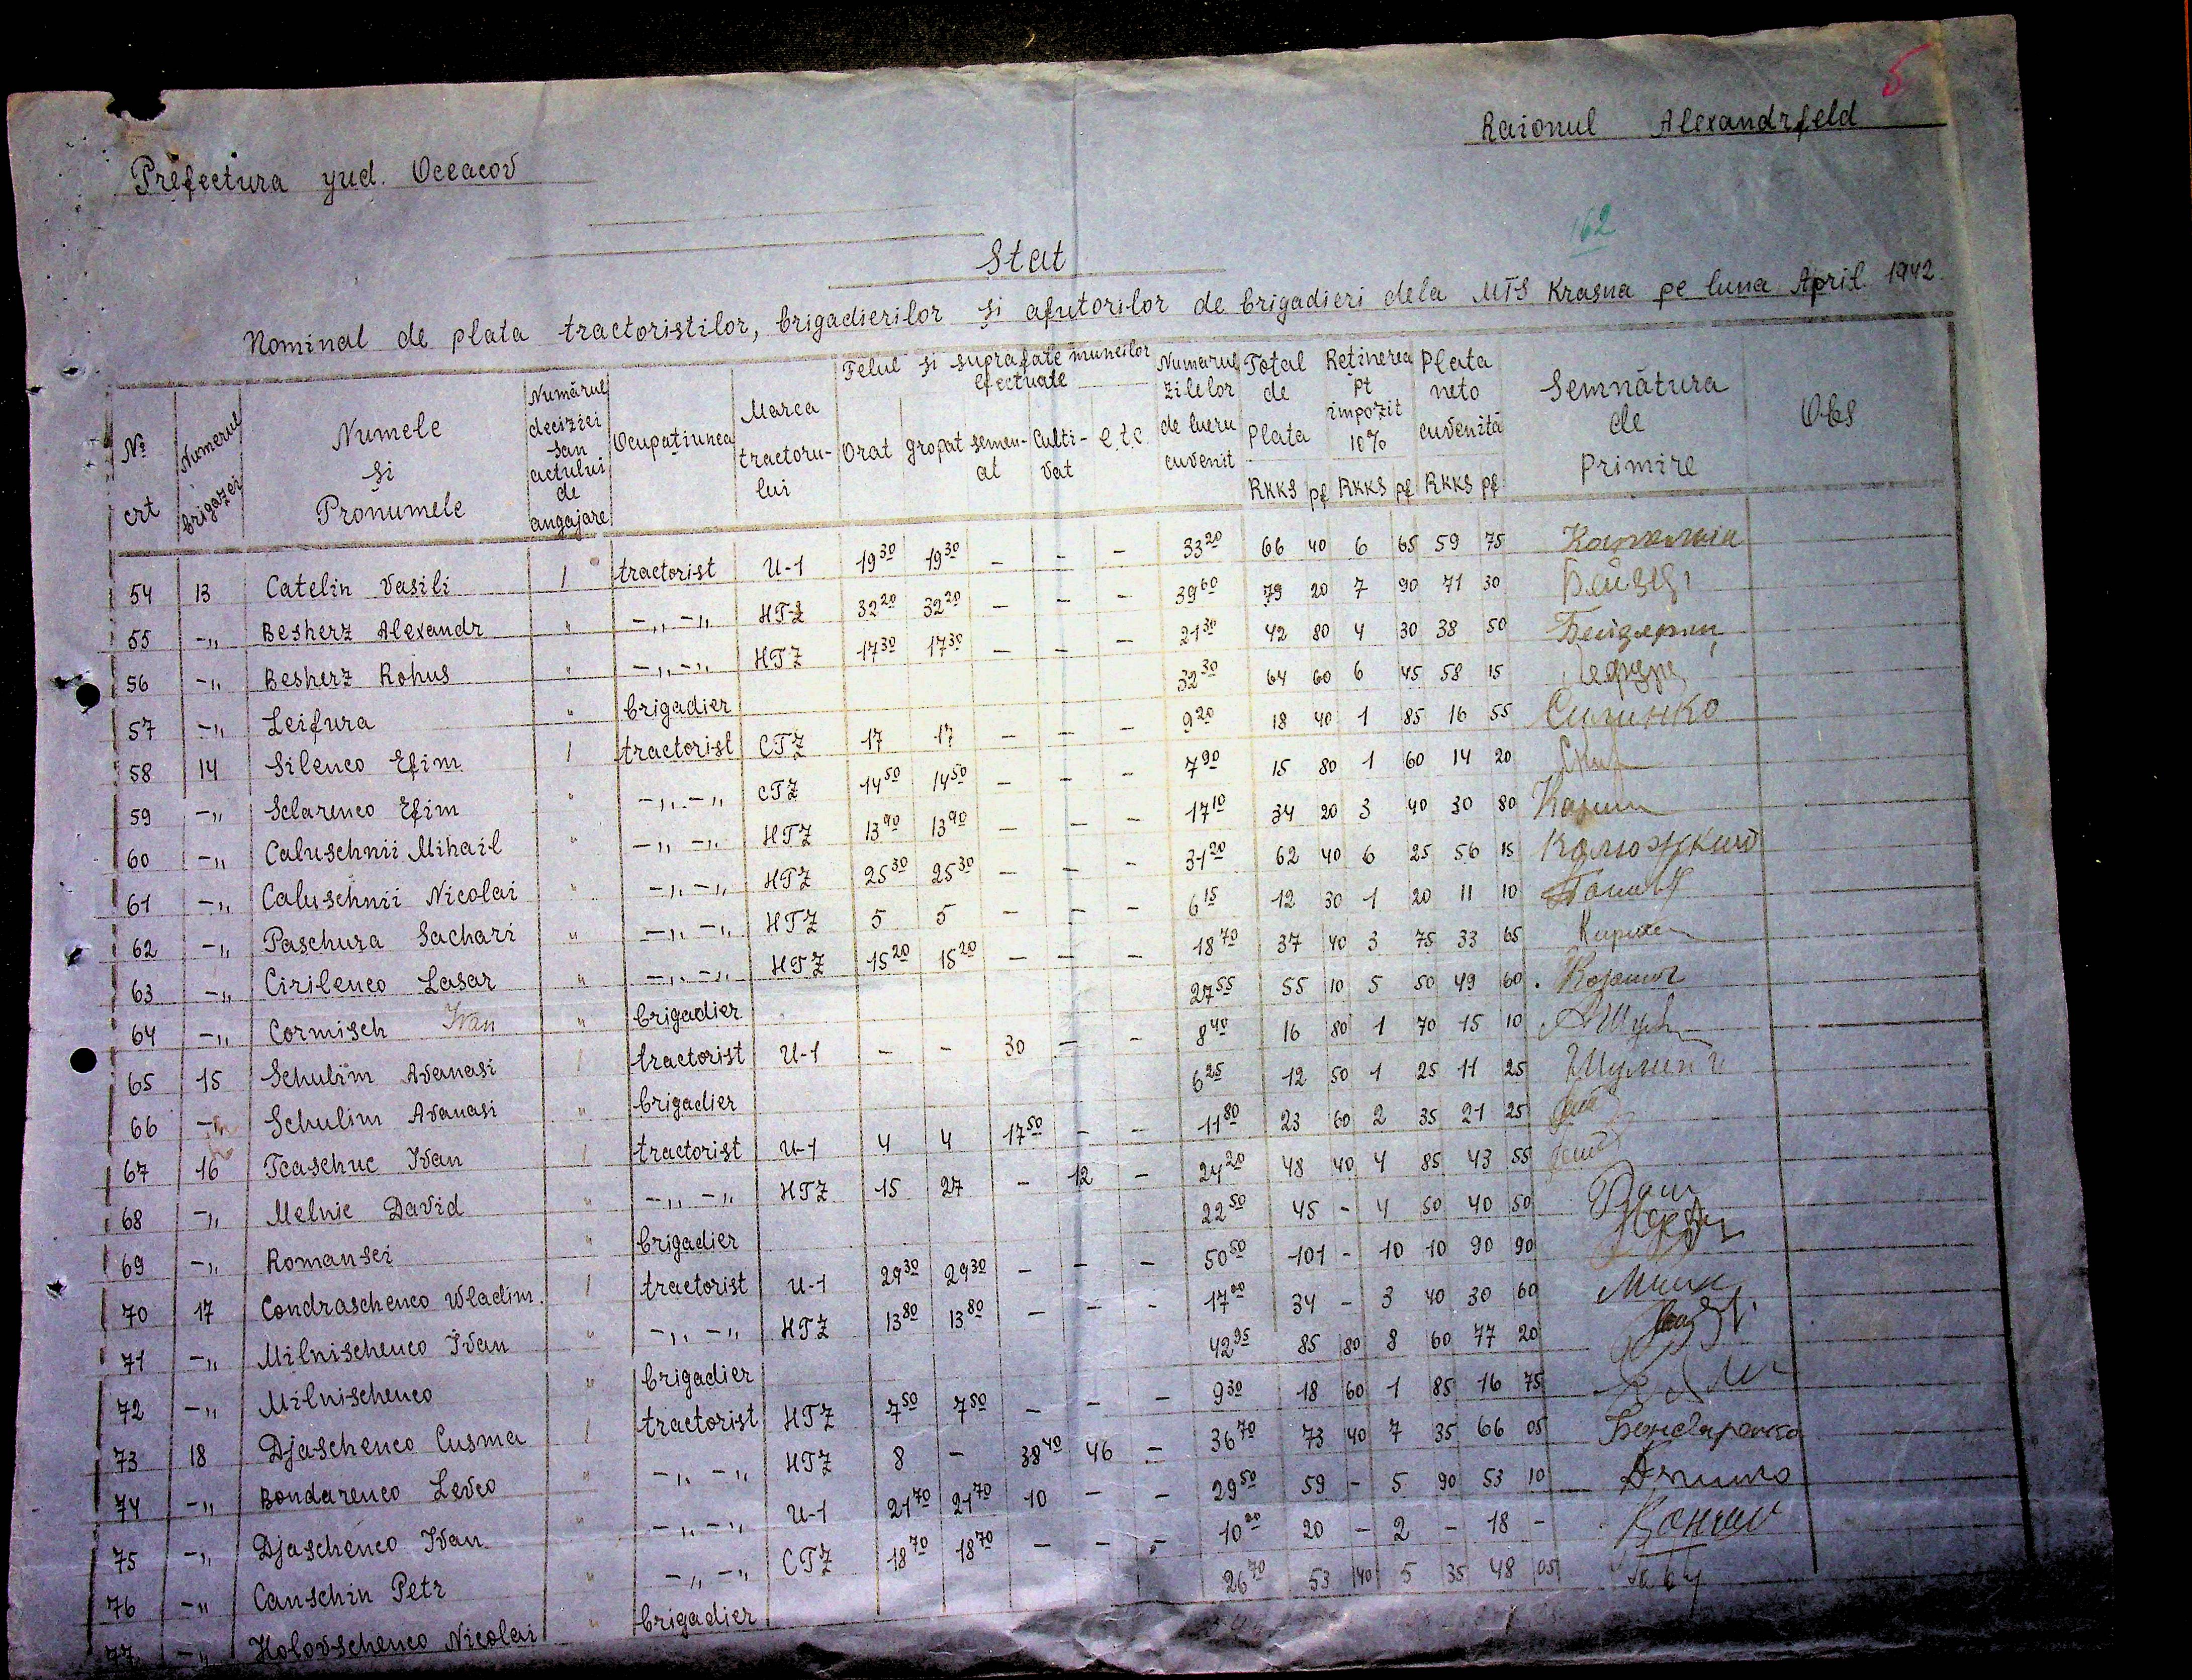 5
Raionul Alexandrfeld
Prefectura yud. Oceacov
162
Stat
Nominal de plata tractoristilor, brigadierilor și afutorilor de brigadieri dela MTS Krasna pe luna April 1942.
№ crt | Numerul brigazei | Numele și Pronumele | Numărul deciziei sau actului de angajare | Ocupațiunea | Marca tractorului | Felul și suprafate muncilor efectuate: Orat | gropat | semen-at | Culti-vat | e.t.c. | Numarul zilelor de lucru cuvenit | Total de Plata RKKS pf | Reținerea pt impozit 10% RKKS pf | Plata neto cuvenită RKKS pf | Semnătura de primire | Obs
54 13 Catelin Vasili 1 tractorist U-1 19 30 19 30 - - - 33 20 66 40 6 65 59 75
55 -„ Besherz Alexandr " -„ -„ HTZ 32 20 32 20 - - - 39 60 79 20 7 90 71 30
56 -„ Besherz Rohus " -„ -„ HTZ 17 30 17 30 - - - 21 30 42 80 4 30 38 50
57 -„ Leifura " brigadier 32 30 64 60 6 45 58 15
58 14 Silenco Efim 1 tractorist CTZ 17 17 - - - 9 20 18 40 1 85 16 55 Силинко
59 -„ Sclarenco Efim " -„ -„ CTZ 14 50 14 50 - - - 7 90 15 80 1 60 14 20
60 -„ Caluschnii Mihail " -„ -„ HTZ 13 90 13 90 - - - 17 10 34 20 3 40 30 80
61 -„ Caluschnii Nicolai " -„ -„ HTZ 25 30 25 30 - - - 31 20 62 40 6 25 56 15
62 -„ Paschura Sachari " -„ -„ HTZ 5 5 - - - 6 15 12 30 1 20 11 10
63 -„ Cirilenco Lasar " -„ -„ HTZ 15 20 15 20 - - - 18 70 37 40 3 75 33 65
64 -„ Cormisch Ivan " brigadier 27 55 55 10 5 50 49 60
65 15 Schulim Avanasi 1 tractorist U-1 - - 30 - - 8 40 16 80 1 70 15 10
66 -„ Schulim Avanasi " brigadier 6 25 12 50 1 25 11 25
67 16 Tcaschuc Ivan 1 tractorist U-1 4 4 17 50 - - 11 80 23 60 2 35 21 25
68 -„ Melnic David " -„ -„ HTZ 15 27 - 12 - 24 20 48 40 4 85 43 55
69 -„ Romansci " brigadier 22 50 45 - 4 50 40 50
70 17 Condraschenco Wladim. 1 tractorist U-1 29 30 29 30 - - - 50 50 101 - 10 10 90 90
71 -„ Milnischenco Ivan " -„ -„ HTZ 13 80 13 80 - - - 17 00 34 - 3 40 30 60
72 -„ Milnischenco " brigadier 42 95 85 80 8 60 77 20
73 18 Djaschenco Cusma 1 tractorist HTZ 7 50 7 50 - - - 9 30 18 60 1 85 16 75
74 -„ Bondarenco Levco " -„ -„ HTZ 8 - 38 40 46 - 36 70 73 40 7 35 66 05 Бондаренко
75 -„ Djaschenco Ivan " -„ -„ U-1 21 70 21 70 10 - - 29 50 59 - 5 90 53 10
76 -„ Canschin Petr " -„ -„ CTZ 18 70 18 70 - - - 10 00 20 - 2 - 18 -
77 -„ Holovschenco Nicolai " brigadier 26 70 53 40 5 35 48 05